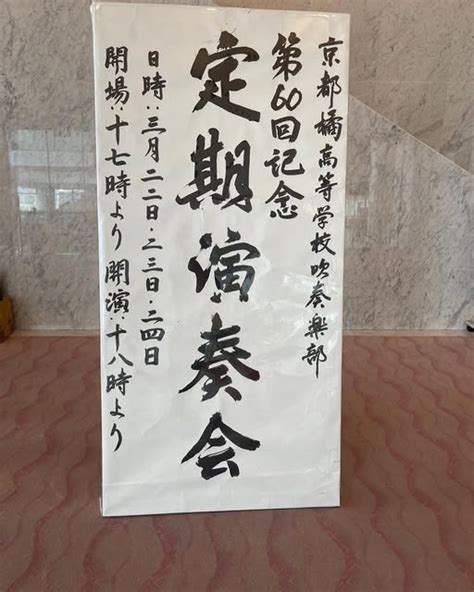 京都橘高等学校吹奏楽部
第60回記念
定期演奏会
日時：三月二二日・二三日・二四日
開場：十七時より 開演：十八時より